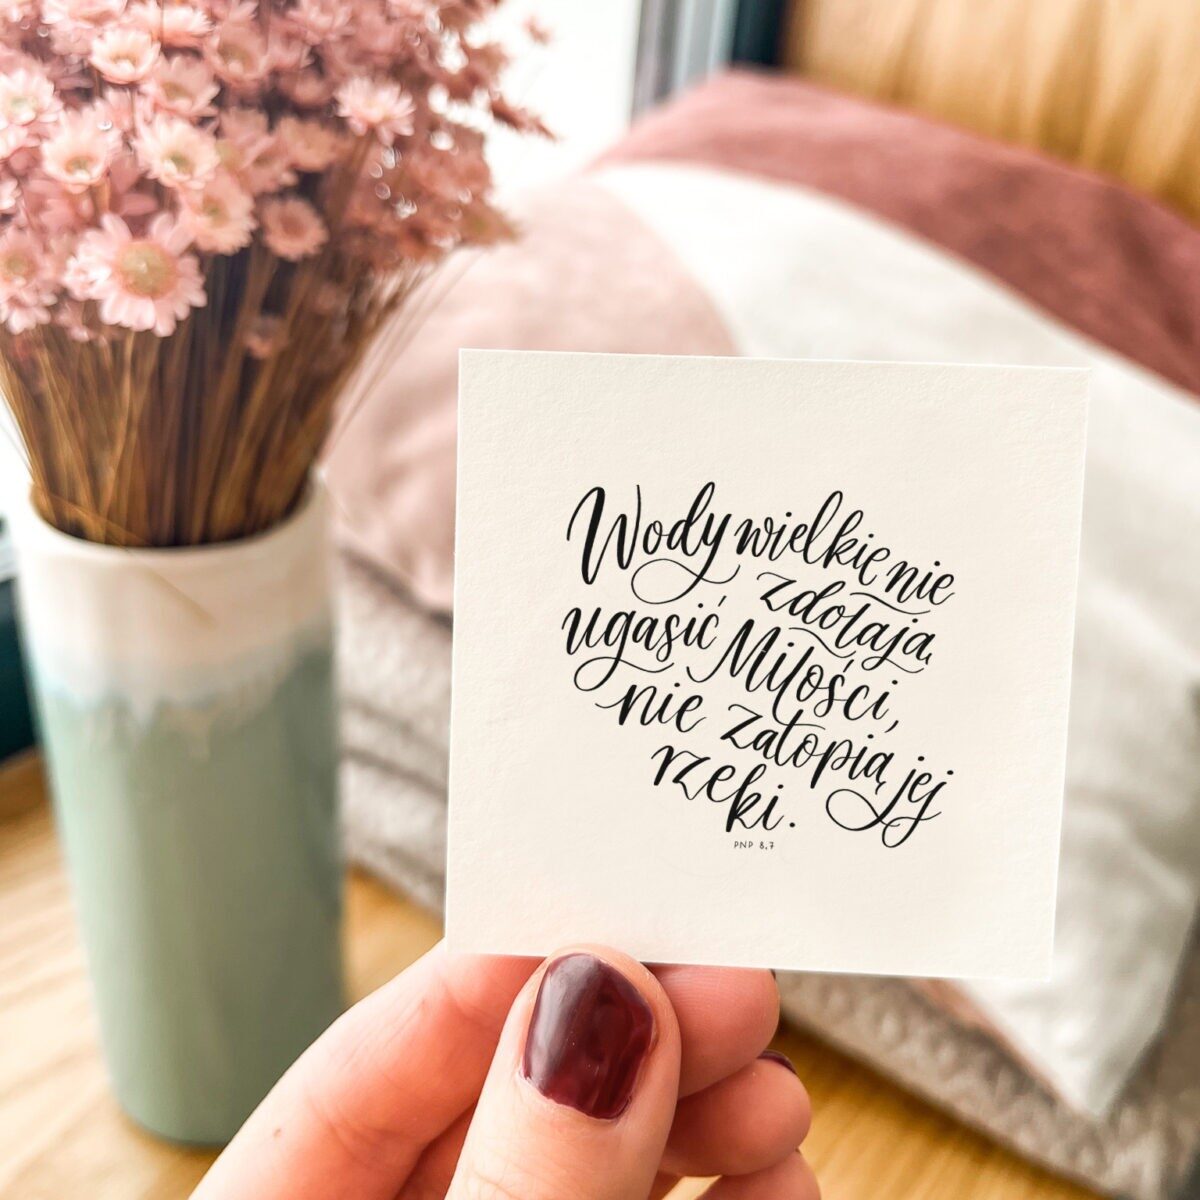 Wody wielkie nie
zdołają
ugasić Miłości,
nie zatopią jej
rzeki.
PNP 8,7